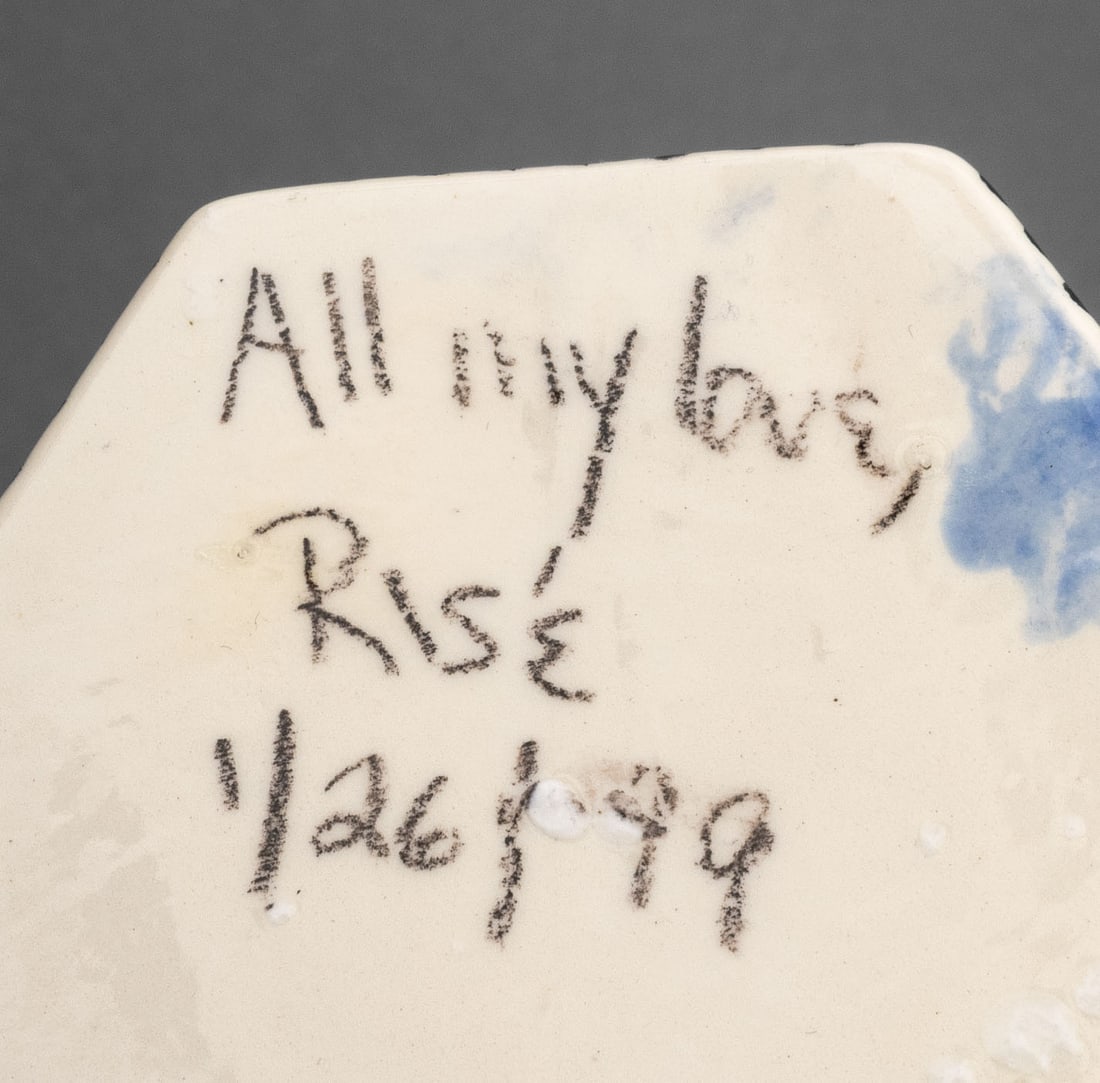 All my love,
Risé
1/26/99